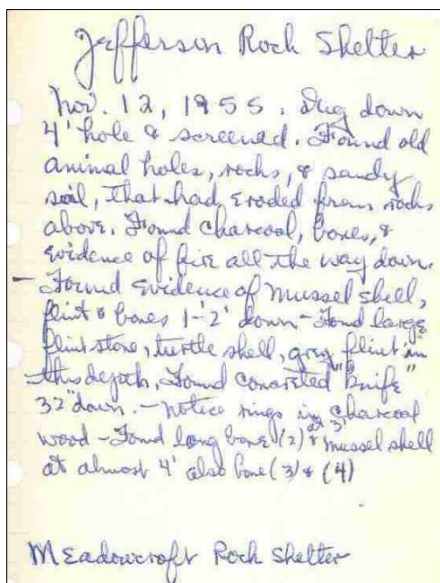 Jefferson Rock Shelter
Nov. 12, 1955. Dug down
4' hole & screened. Found old
animal holes, rocks, & sandy
soil, that had eroded from rocks
above. Found charcoal, bones, &
evidence of fire all the way down.
- Found evidence of mussel shell,
flint & bones 1-2' down - Found large
flint stone, turtle shell, grey flint in
this depth, Found concreted "Knife"
32" down. - notice rings in charcoal
wood - Found long bone (2) at 3' & mussel shell
at almost 4' also bone (3) & (4)
Meadowcroft Rock Shelter